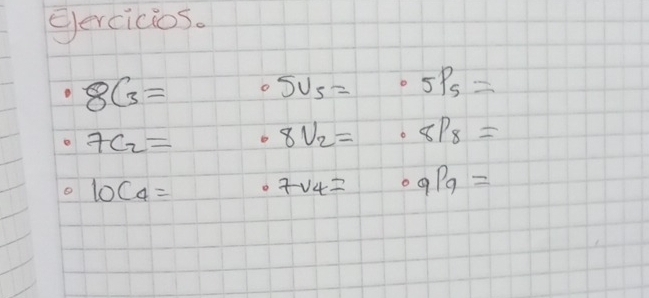 Ejercicios.
• 8C3= • 5V5= • 5P5=
• 7C2= • 8V2= • 8P8=
• 10C4= • 7V4= • 9P9=